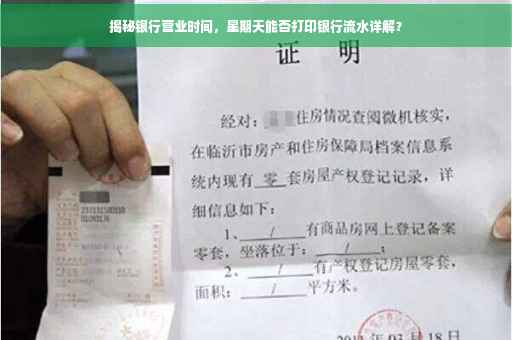 揭秘银行营业时间，星期天能否打印银行流水详解？
证 明
经对：住房情况查阅微机核实，
在临沂市房产和住房保障局档案信息系
统内现有 零 套房屋产权登记记录，详
细信息如下：
1、 / 有商品房网上登记备案
零套，坐落位于： / ；
2、 / 有产权登记房屋零套，
面积： / 平方米。